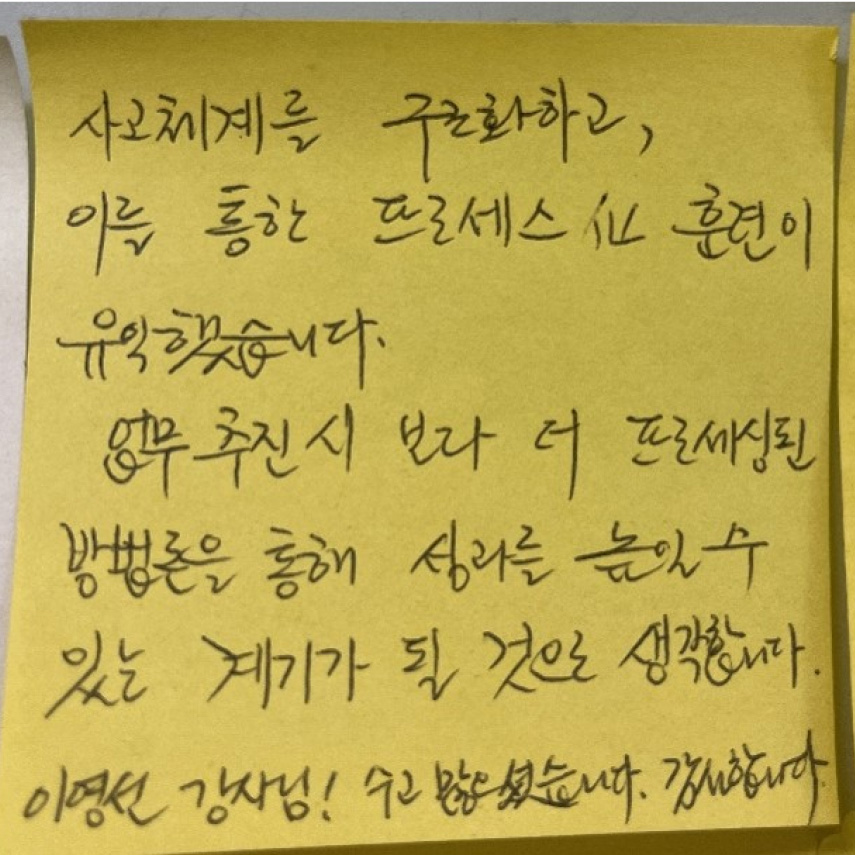 사고체계를 구조화하고,
이를 통한 프로세스化 훈련이
유익했습니다.
업무 추진 시 보다 더 프로세싱된
방법론을 통해 성과를 높일 수
있는 계기가 될 것으로 생각합니다.
이영선 강사님! 수고 많으셨습니다. 감사합니다.